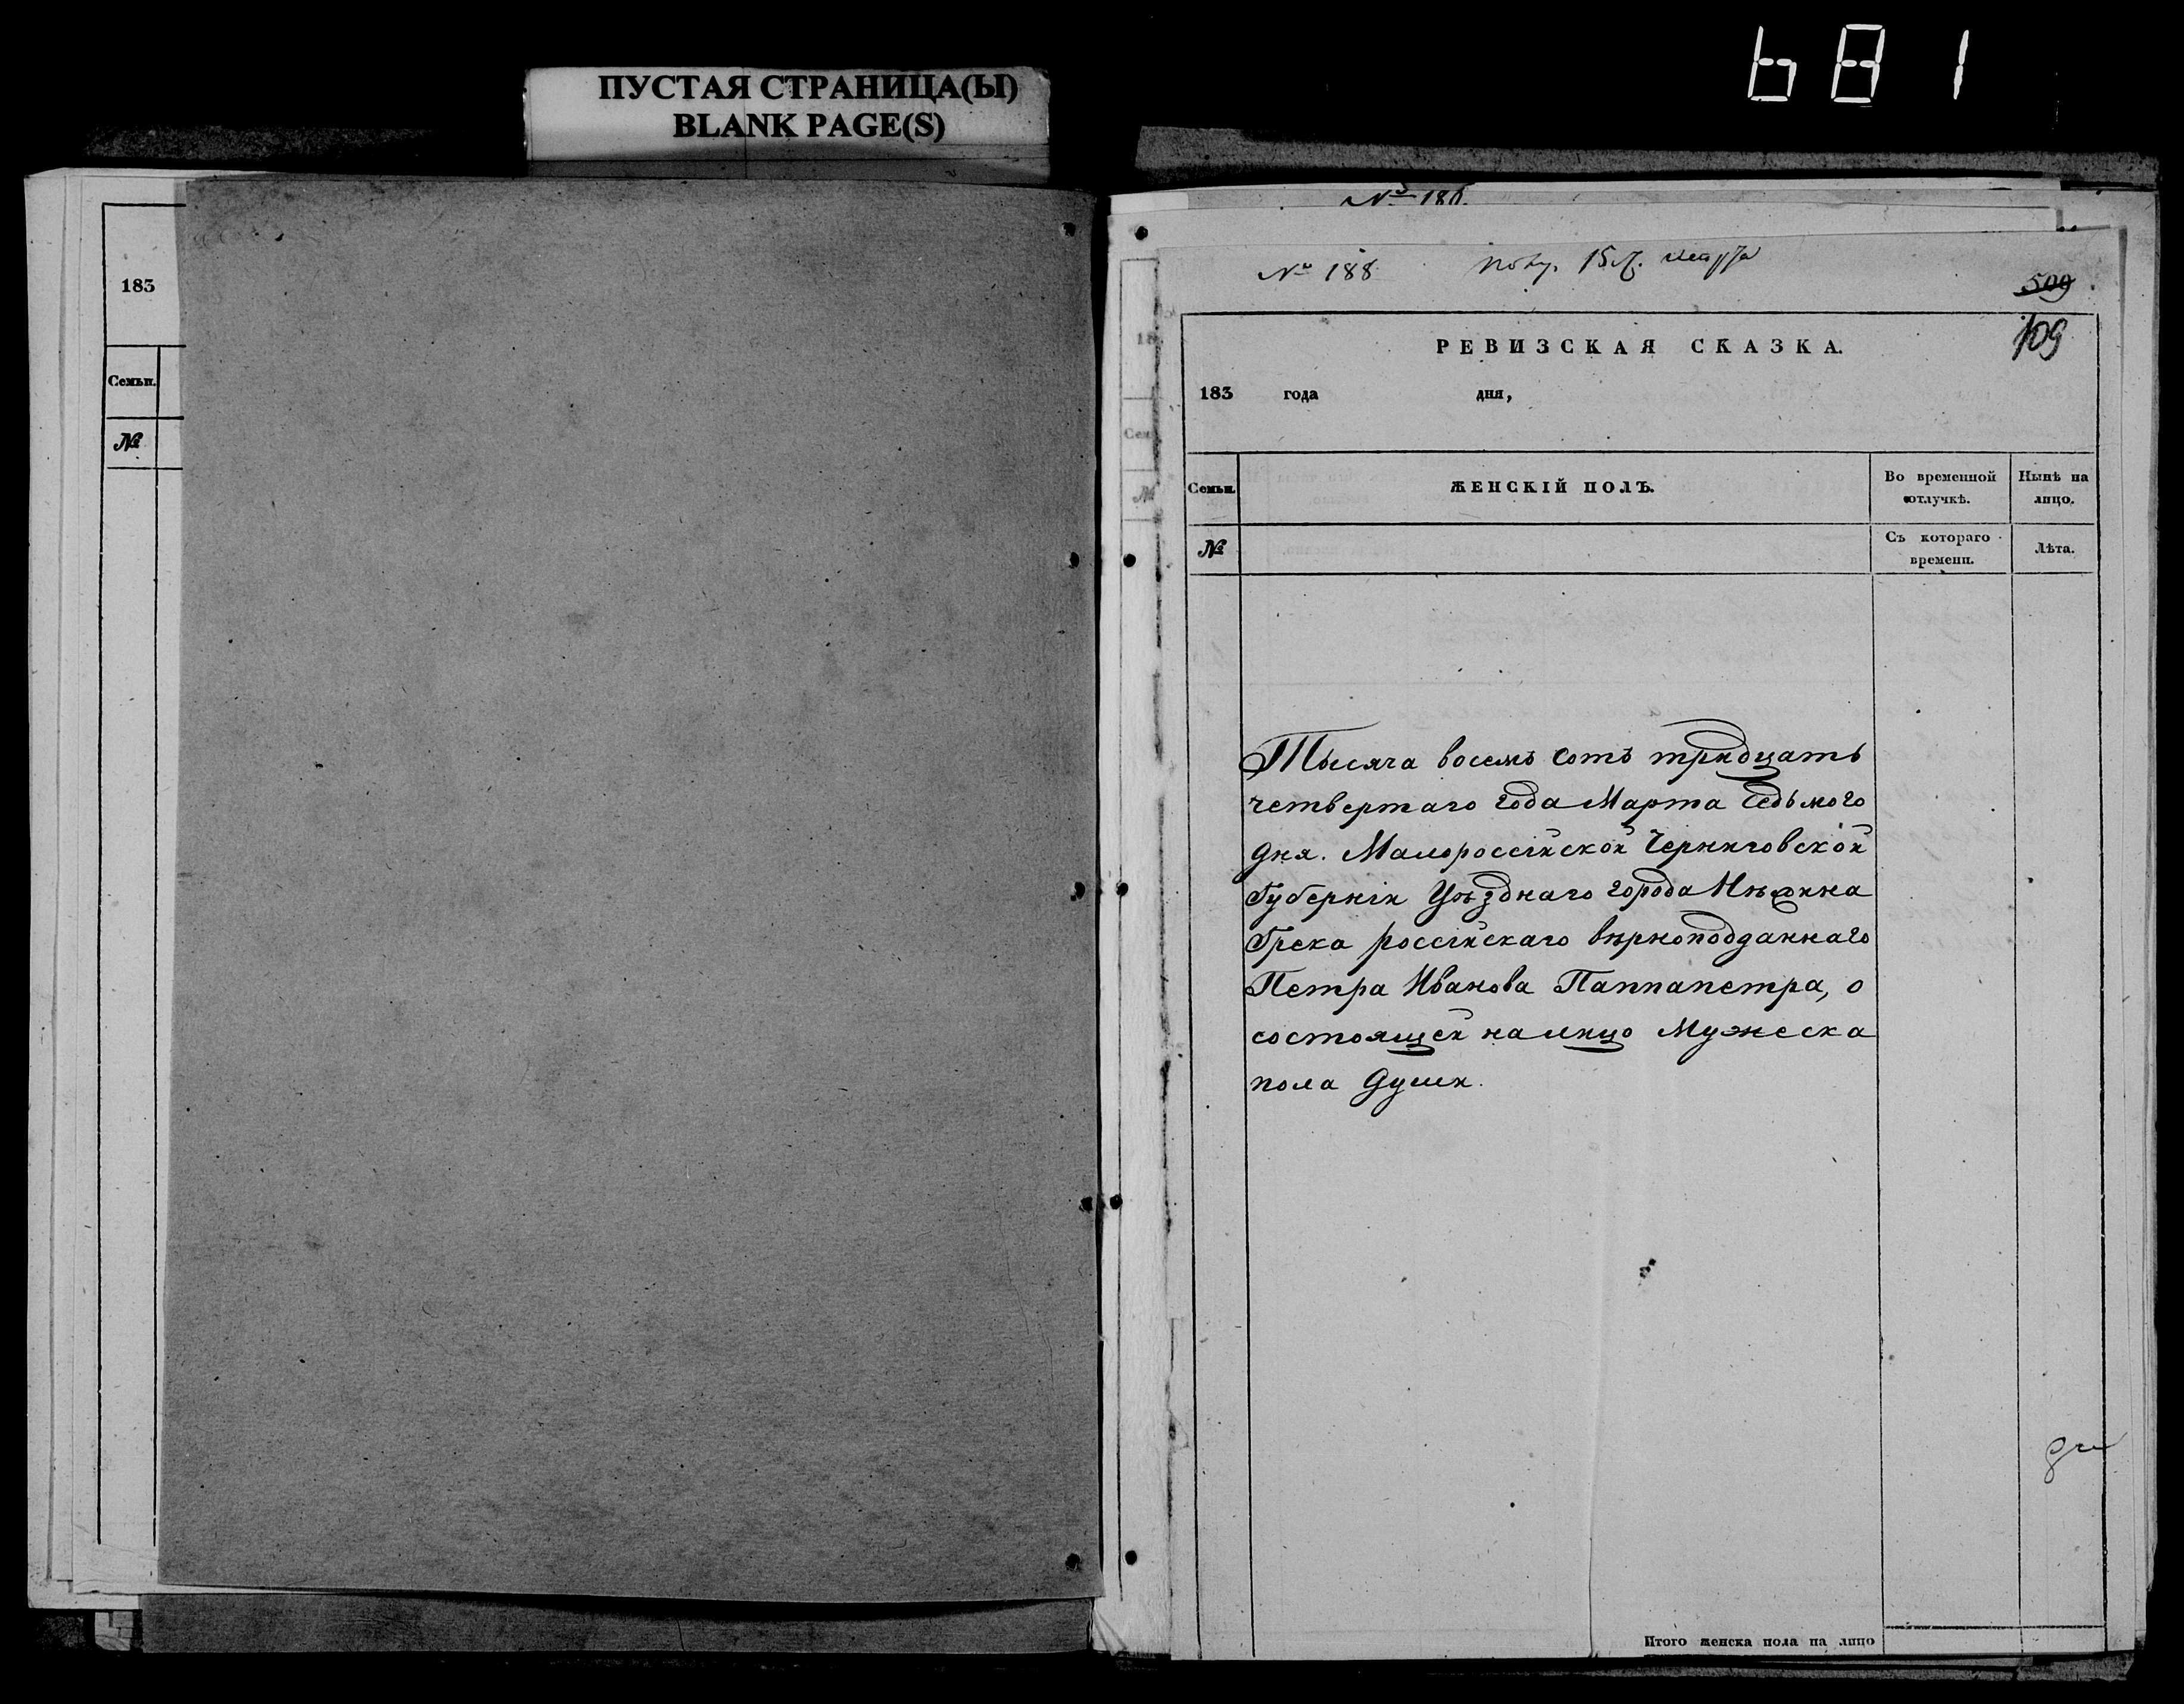 681
ПУСТАЯ СТРАНИЦА(Ы)
BLANK PAGE(S)
183
Семьи.
№
№ 186.
№ 188 15 марта
509
109
РЕВИЗСКАЯ СКАЗКА.
183 года дня,
Семьи. ЖЕНСКІЙ ПОЛЪ. Во временной отлучкѣ. Нынѣ на лицо.
№ Съ котораго времени. Лѣта.
Тысяча восемь сотъ тридцать
четвертаго года Марта Седьмого
дня. Малороссійской Черниговской
Губерніи Уѣзднаго города Нѣжина
Грека россійскаго вѣрноподданнаго
Петра Иванова Паппапетра, о
состоящей налицо Мужеска
пола души.
Итого женска пола на лицо